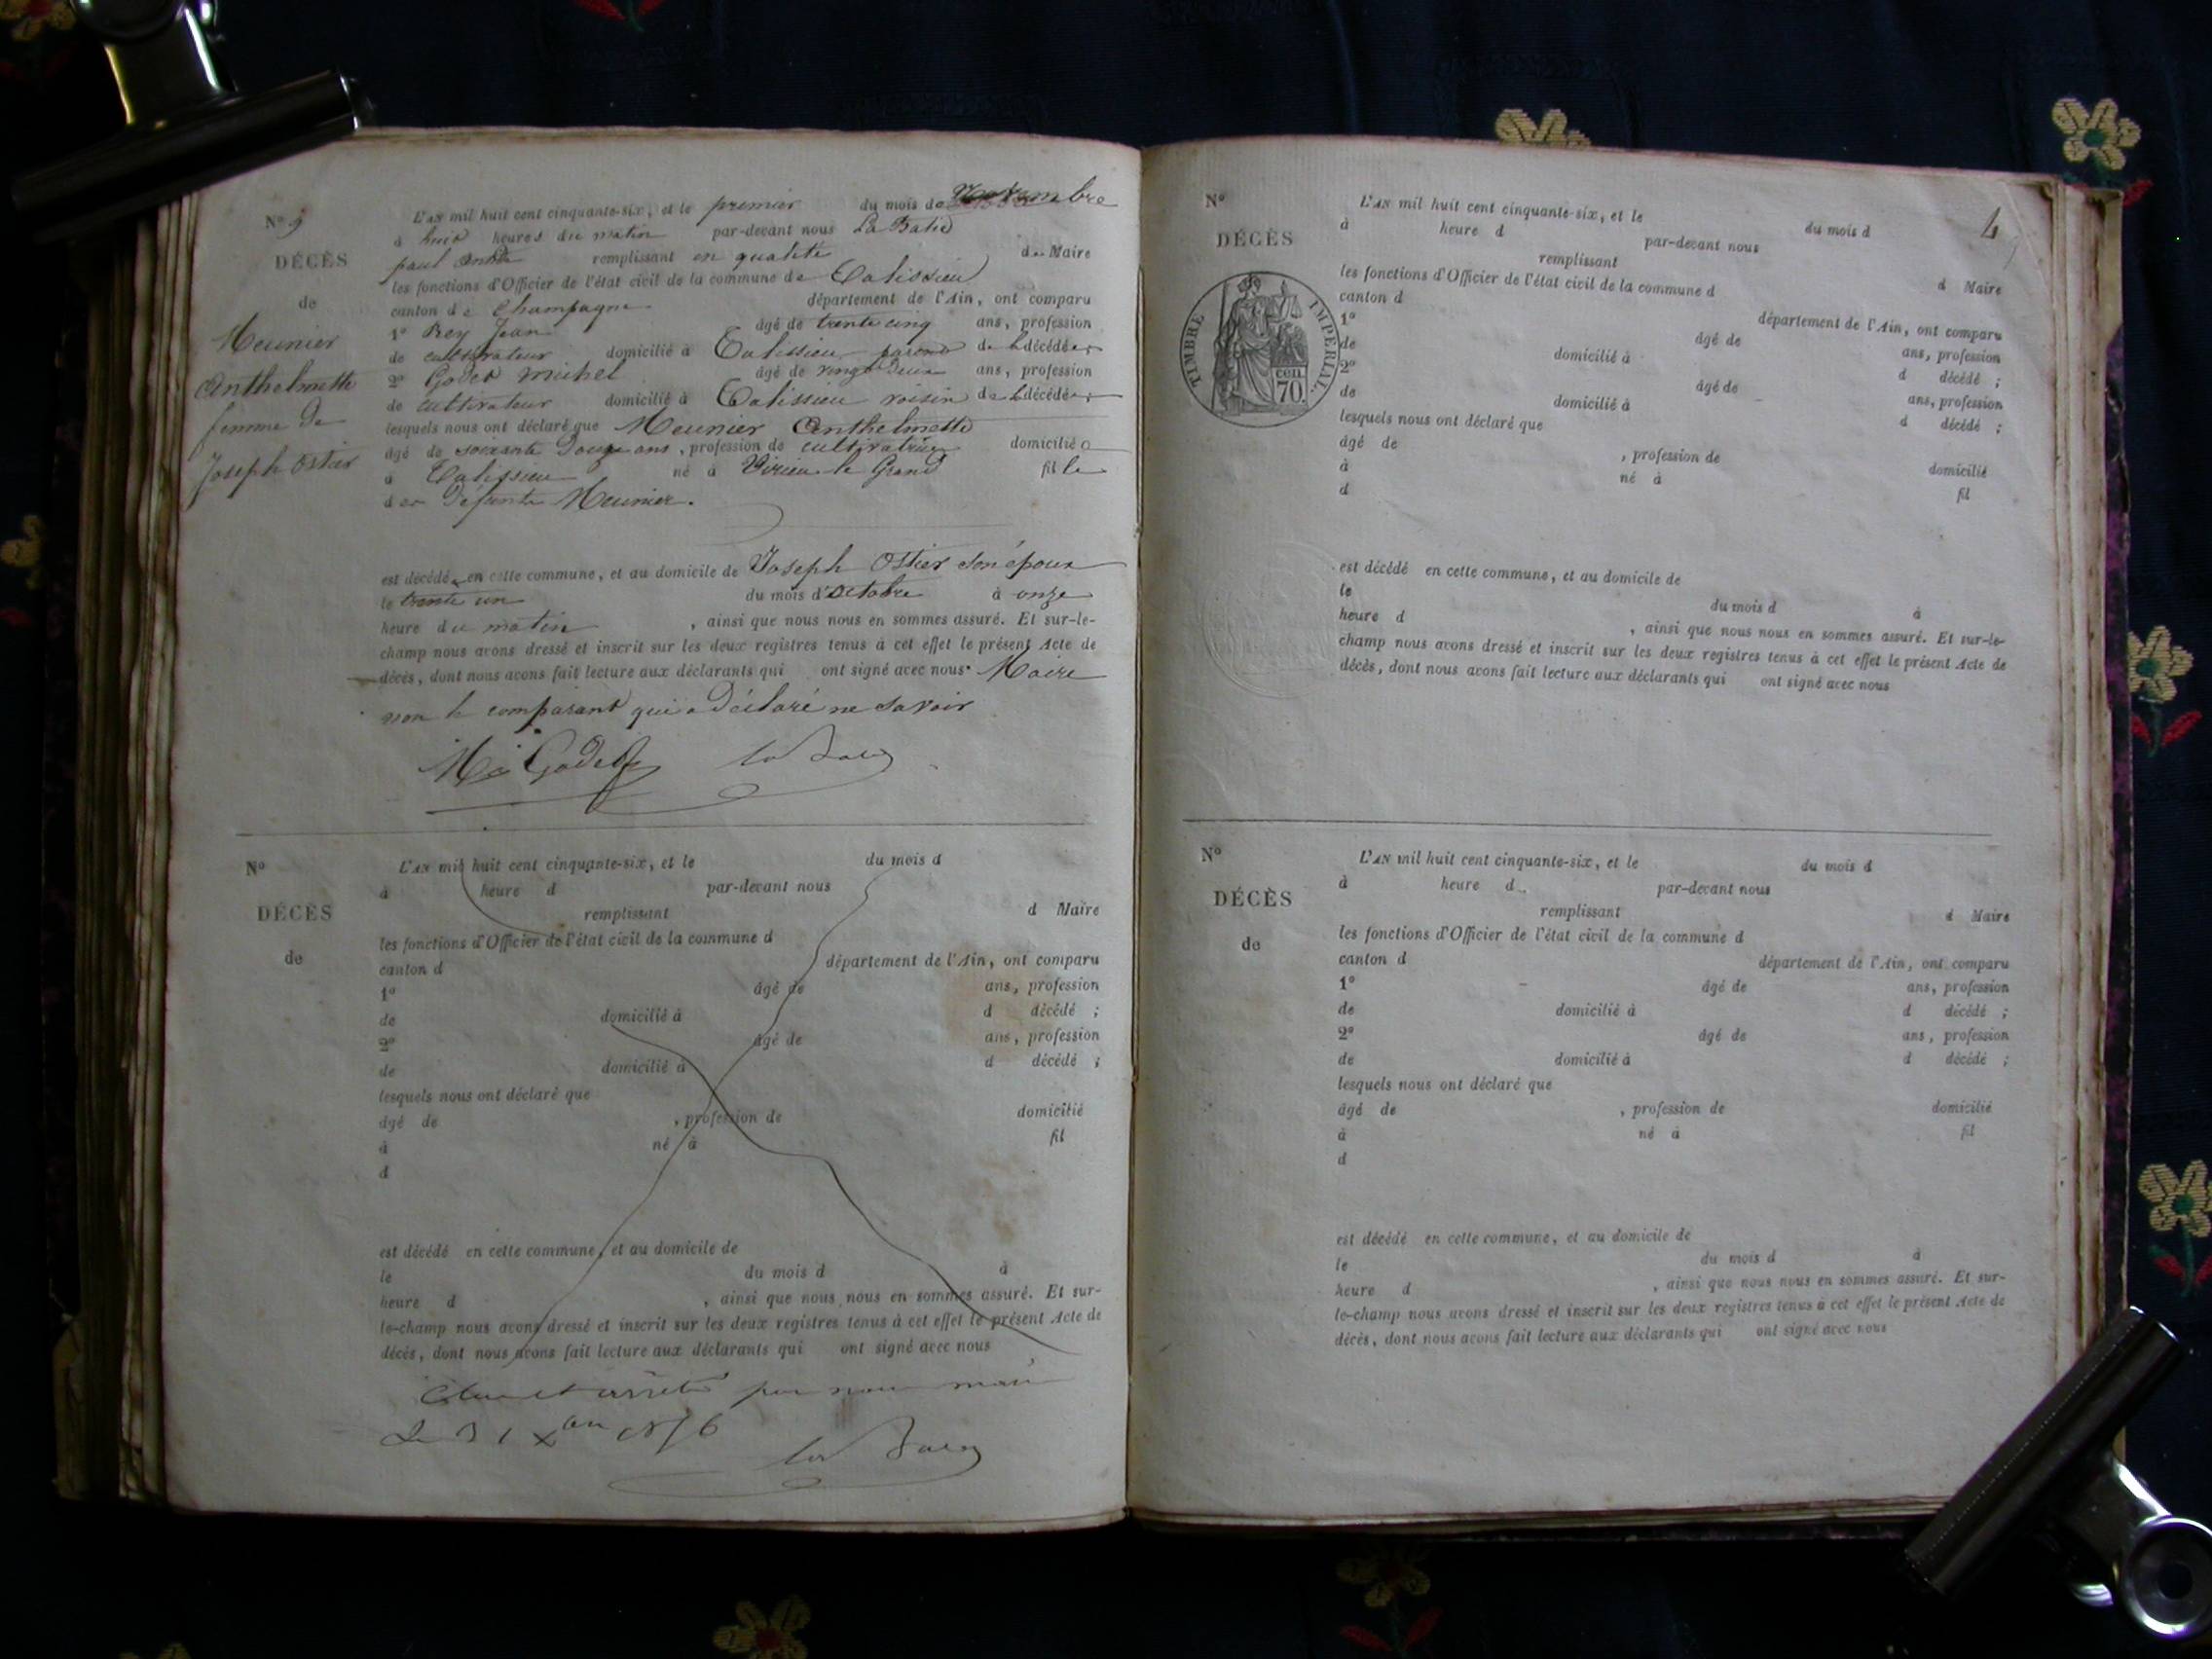 N° 9
DÉCÈS
de
Meunier
Anthelmette
femme de
Joseph Ostier
L'AN mil huit cent cinquante-six, et le premier du mois de Novembre
à huit heures du matin par-devant nous La Batie
paul remplissant en qualité de Maire
les fonctions d'Officier de l'état civil de la commune de Talissieu
canton de Champagne département de l'Ain, ont comparu
1° Rey Jean âgé de trente cinq ans, profession
de cultivateur domicilié à Talissieu parent de la décédée ;
2° Godet Michel âgé de vingt deux ans, profession
de cultivateur domicilié à Talissieu voisin de la décédée ;
lesquels nous ont déclaré que Meunier Anthelmette
âgé de soixante douze ans, profession de cultivatrice domicilié
à Talissieu né à Virieu le Grand fille
des défunts Meunier.
est décédée en cette commune, et au domicile de Joseph Ostier son époux
le trente un du mois d'octobre à onze
heure du matin , ainsi que nous nous en sommes assuré. Et sur-le-
champ nous avons dressé et inscrit sur les deux registres tenus à cet effet le présent Acte de
décès, dont nous avons fait lecture aux déclarants qui ont signé avec nous Maire
non le comparant qui a déclaré ne savoir
Mi Godet
N°
DÉCÈS
de
L'AN mil huit cent cinquante-six, et le du mois d
à heure d par-devant nous
remplissant d Maire
les fonctions d'Officier de l'état civil de la commune d
canton d département de l'Ain, ont comparu
1° âgé de ans, profession
de domicilié à d décédé ;
2° âgé de ans, profession
de domicilié à d décédé ;
lesquels nous ont déclaré que
âgé de , profession de domicilié
à né à fil
d
est décédé en cette commune, et au domicile de
le du mois d à
heure d , ainsi que nous nous en sommes assuré. Et sur-
le-champ nous avons dressé et inscrit sur les deux registres tenus à cet effet le présent Acte de
décès, dont nous avons fait lecture aux déclarants qui ont signé avec nous
Clos et arrêté par nous maire
Le 31 Xbre 1856
4
N°
DÉCÈS
TIMBRE IMPERIAL
cen.
70.
L'AN mil huit cent cinquante-six, et le du mois d
à heure d par-devant nous
remplissant d Maire
les fonctions d'Officier de l'état civil de la commune d
canton d département de l'Ain, ont comparu
1° âgé de ans, profession
de domicilié à d décédé ;
2° âgé de ans, profession
de domicilié à d décédé ;
lesquels nous ont déclaré que
âgé de , profession de domicilié
à né à fil
d
est décédé en cette commune, et au domicile de
le du mois d à
heure d , ainsi que nous nous en sommes assuré. Et sur-le-
champ nous avons dressé et inscrit sur les deux registres tenus à cet effet le présent Acte de
décès, dont nous avons fait lecture aux déclarants qui ont signé avec nous
N°
DÉCÈS
de
L'AN mil huit cent cinquante-six, et le du mois d
à heure d par-devant nous
remplissant d Maire
les fonctions d'Officier de l'état civil de la commune d
canton d département de l'Ain, ont comparu
1° âgé de ans, profession
de domicilié à d décédé ;
2° âgé de ans, profession
de domicilié à d décédé ;
lesquels nous ont déclaré que
âgé de , profession de domicilié
à né à fil
d
est décédé en cette commune, et au domicile de
le du mois d à
heure d , ainsi que nous nous en sommes assuré. Et sur-
le-champ nous avons dressé et inscrit sur les deux registres tenus à cet effet le présent Acte de
décès, dont nous avons fait lecture aux déclarants qui ont signé avec nous